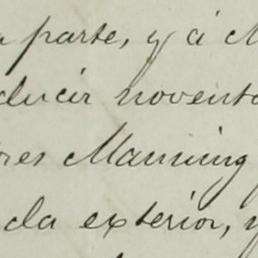 a parte, y á M
ducir novento
res Manning
da exterior, y